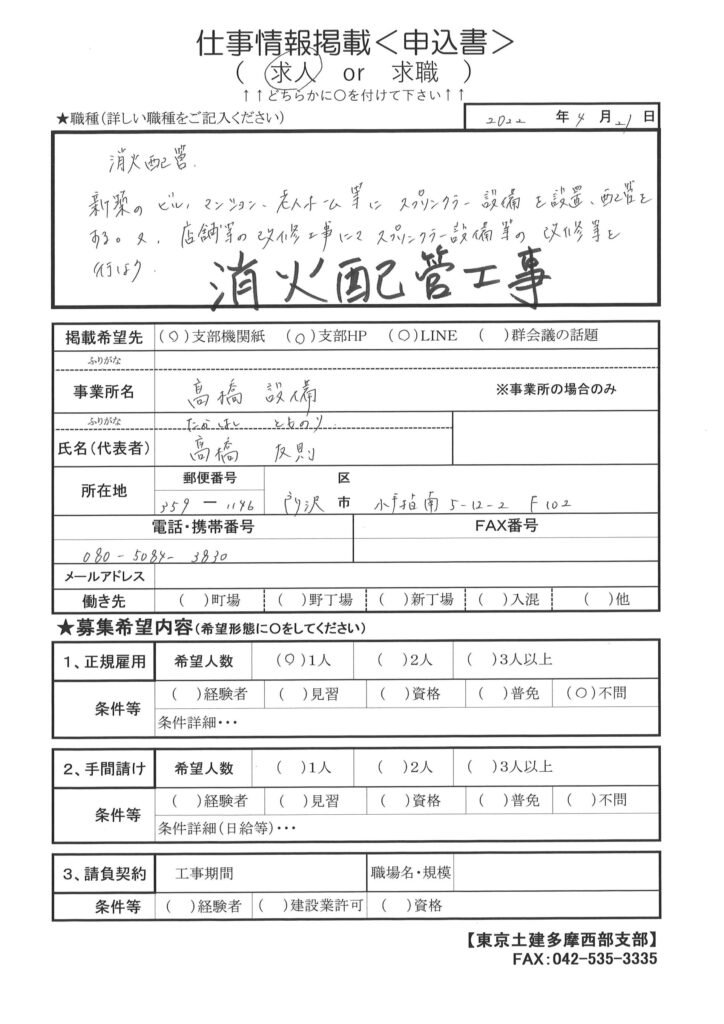 仕事情報掲載＜申込書＞
（ 求人 or 求職 ）
↑↑どちらかに〇を付けて下さい↑↑
★職種（詳しい職種をご記入ください）
2022 年 4 月 21 日
消火配管.
新築のビル,マンション、老人ホーム等にスプリンクラー設備を設置、配管を
する。又、店舗等の改修工事にてスプリンクラー設備等の改修等を
行なう.
消火配管工事
掲載希望先 (〇)支部機関紙 (〇)支部HP (〇)LINE ( )群会議の話題
ふりがな
事業所名 高橋 設備 ※事業所の場合のみ
ふりがな たかはし とものり
氏名（代表者） 高橋 友則
所在地 郵便番号 区
359 ー 1146 所沢 市 小手指南 5-12-2 F102
電話・携帯番号 FAX番号
080-5084-3830
メールアドレス
働き先 ( )町場 ( )野丁場 ( )新丁場 ( )入混 ( )他
★募集希望内容（希望形態に〇をしてください）
1、正規雇用 希望人数 (〇)1人 ( )2人 ( )3人以上
条件等 ( )経験者 ( )見習 ( )資格 ( )普免 (〇)不問
条件詳細・・・
2、手間請け 希望人数 ( )1人 ( )2人 ( )3人以上
条件等 ( )経験者 ( )見習 ( )資格 ( )普免 ( )不問
条件詳細（日給等）・・・
3、請負契約 工事期間 職場名・規模
条件等 ( )経験者 ( )建設業許可 ( )資格
【東京土建多摩西部支部】
FAX：042-535-3335